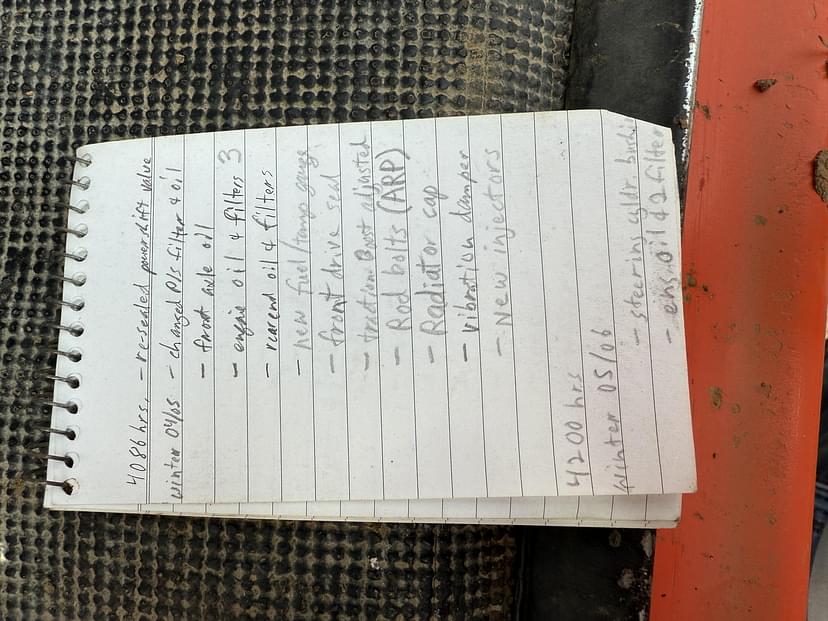 4086 hrs. - re-sealed powershift valve
winter 04/05 - changed P/S filter & oil
- front axle oil
- engine oil & filters 3
- rearend oil & filters
- new fuel/temp gauge
- front drive seal
- traction Boost adjusted
- Rod bolts (ARP)
- Radiator cap
- vibration damper
- New injectors
4200 hrs
winter 05/06
- steering cyldr. bushin
- eng oil & 2 filter